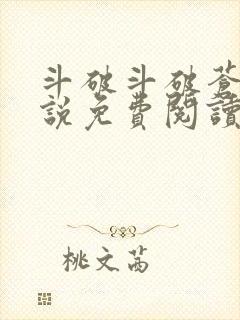 斗破斗破蒼
說免費閱讀
桃文芮